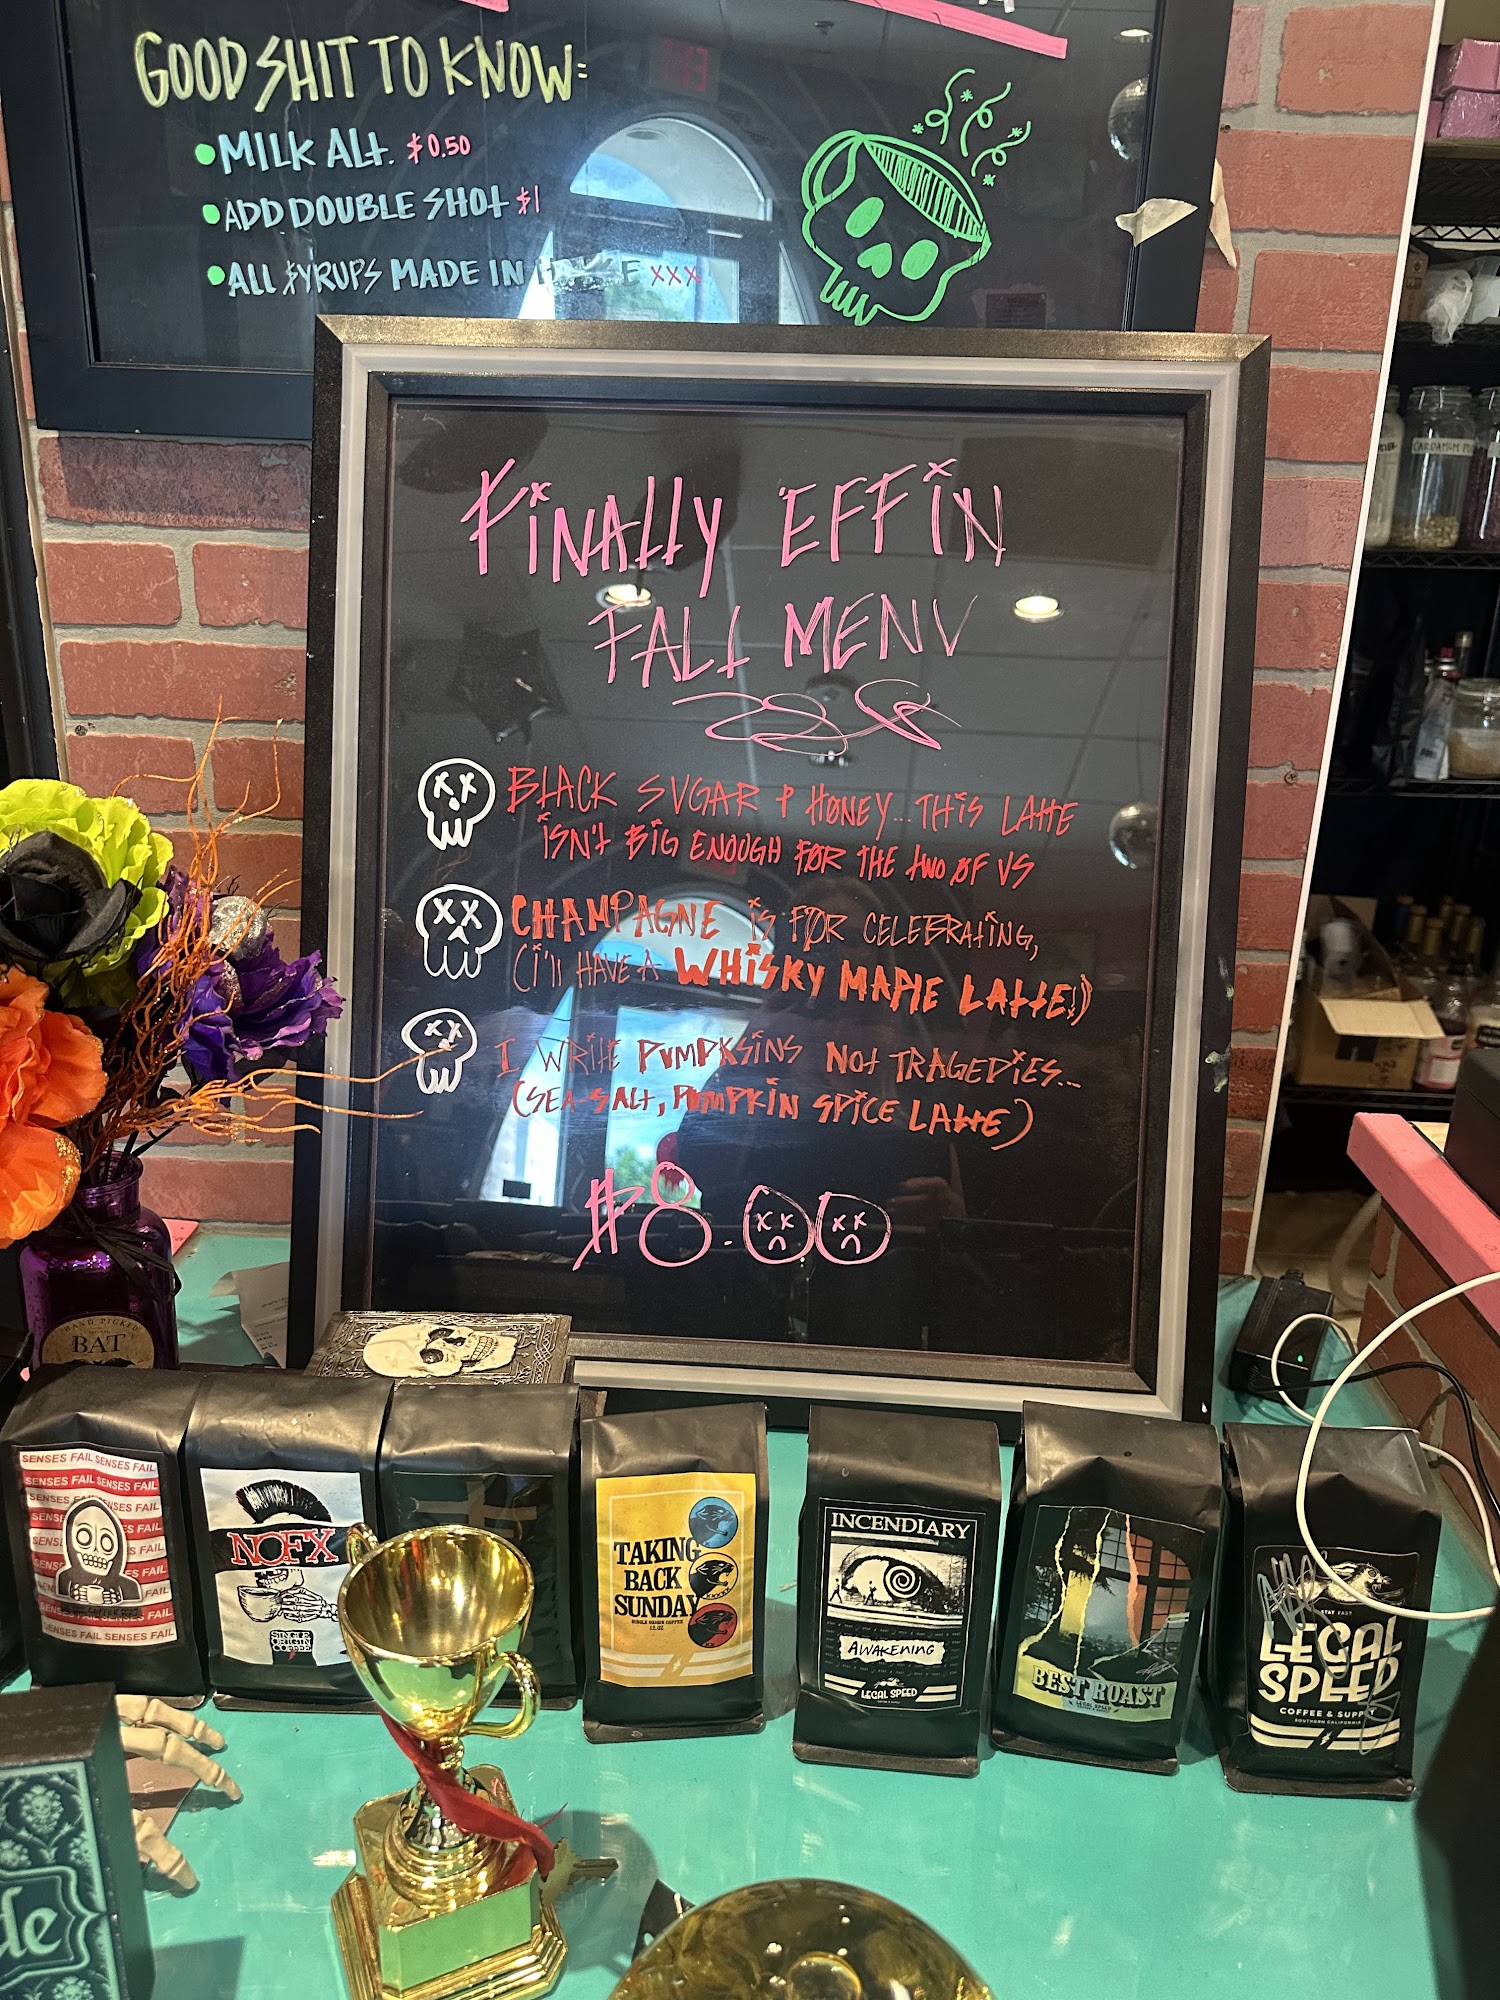 GOOD SHIT TO KNOW:
• MILK ALT. $0.50
• ADD DOUBLE SHOT $1
• ALL SYRUPS MADE IN XXX
FINALLY EFFIN
FALL MENU
BLACK SUGAR + HONEY... THIS LATTE
ISN'T BIG ENOUGH FOR THE TWO OF US
CHAMPAGNE IS FOR CELEBRATING,
(I'll HAVE A WHISKY MAPLE LATTE!)
I WRITE PUMPKSINS NOT TRAGEDIES...
(SEA-SALT, PUMPKIN SPICE LATTE)
$8.
CARDAMOM
HAND PICKED
BAT
SENSES FAIL SENSES FAIL
SENSES FAIL SENSES FAIL
SENSES FAIL SENSES FAIL
NOFX
SINGLE
ORIGIN
COFFEE
TAKING
BACK
SUNDAY
SINGLE ORIGIN COFFEE
12.OZ
INCENDIARY
AWAKENING
LEGAL SPEED
BEST ROAST
LEGAL SPEED
STAY FAST
LEGAL
SPEED
COFFEE & SUPPLY
SOUTHERN CALIFORNIA
de